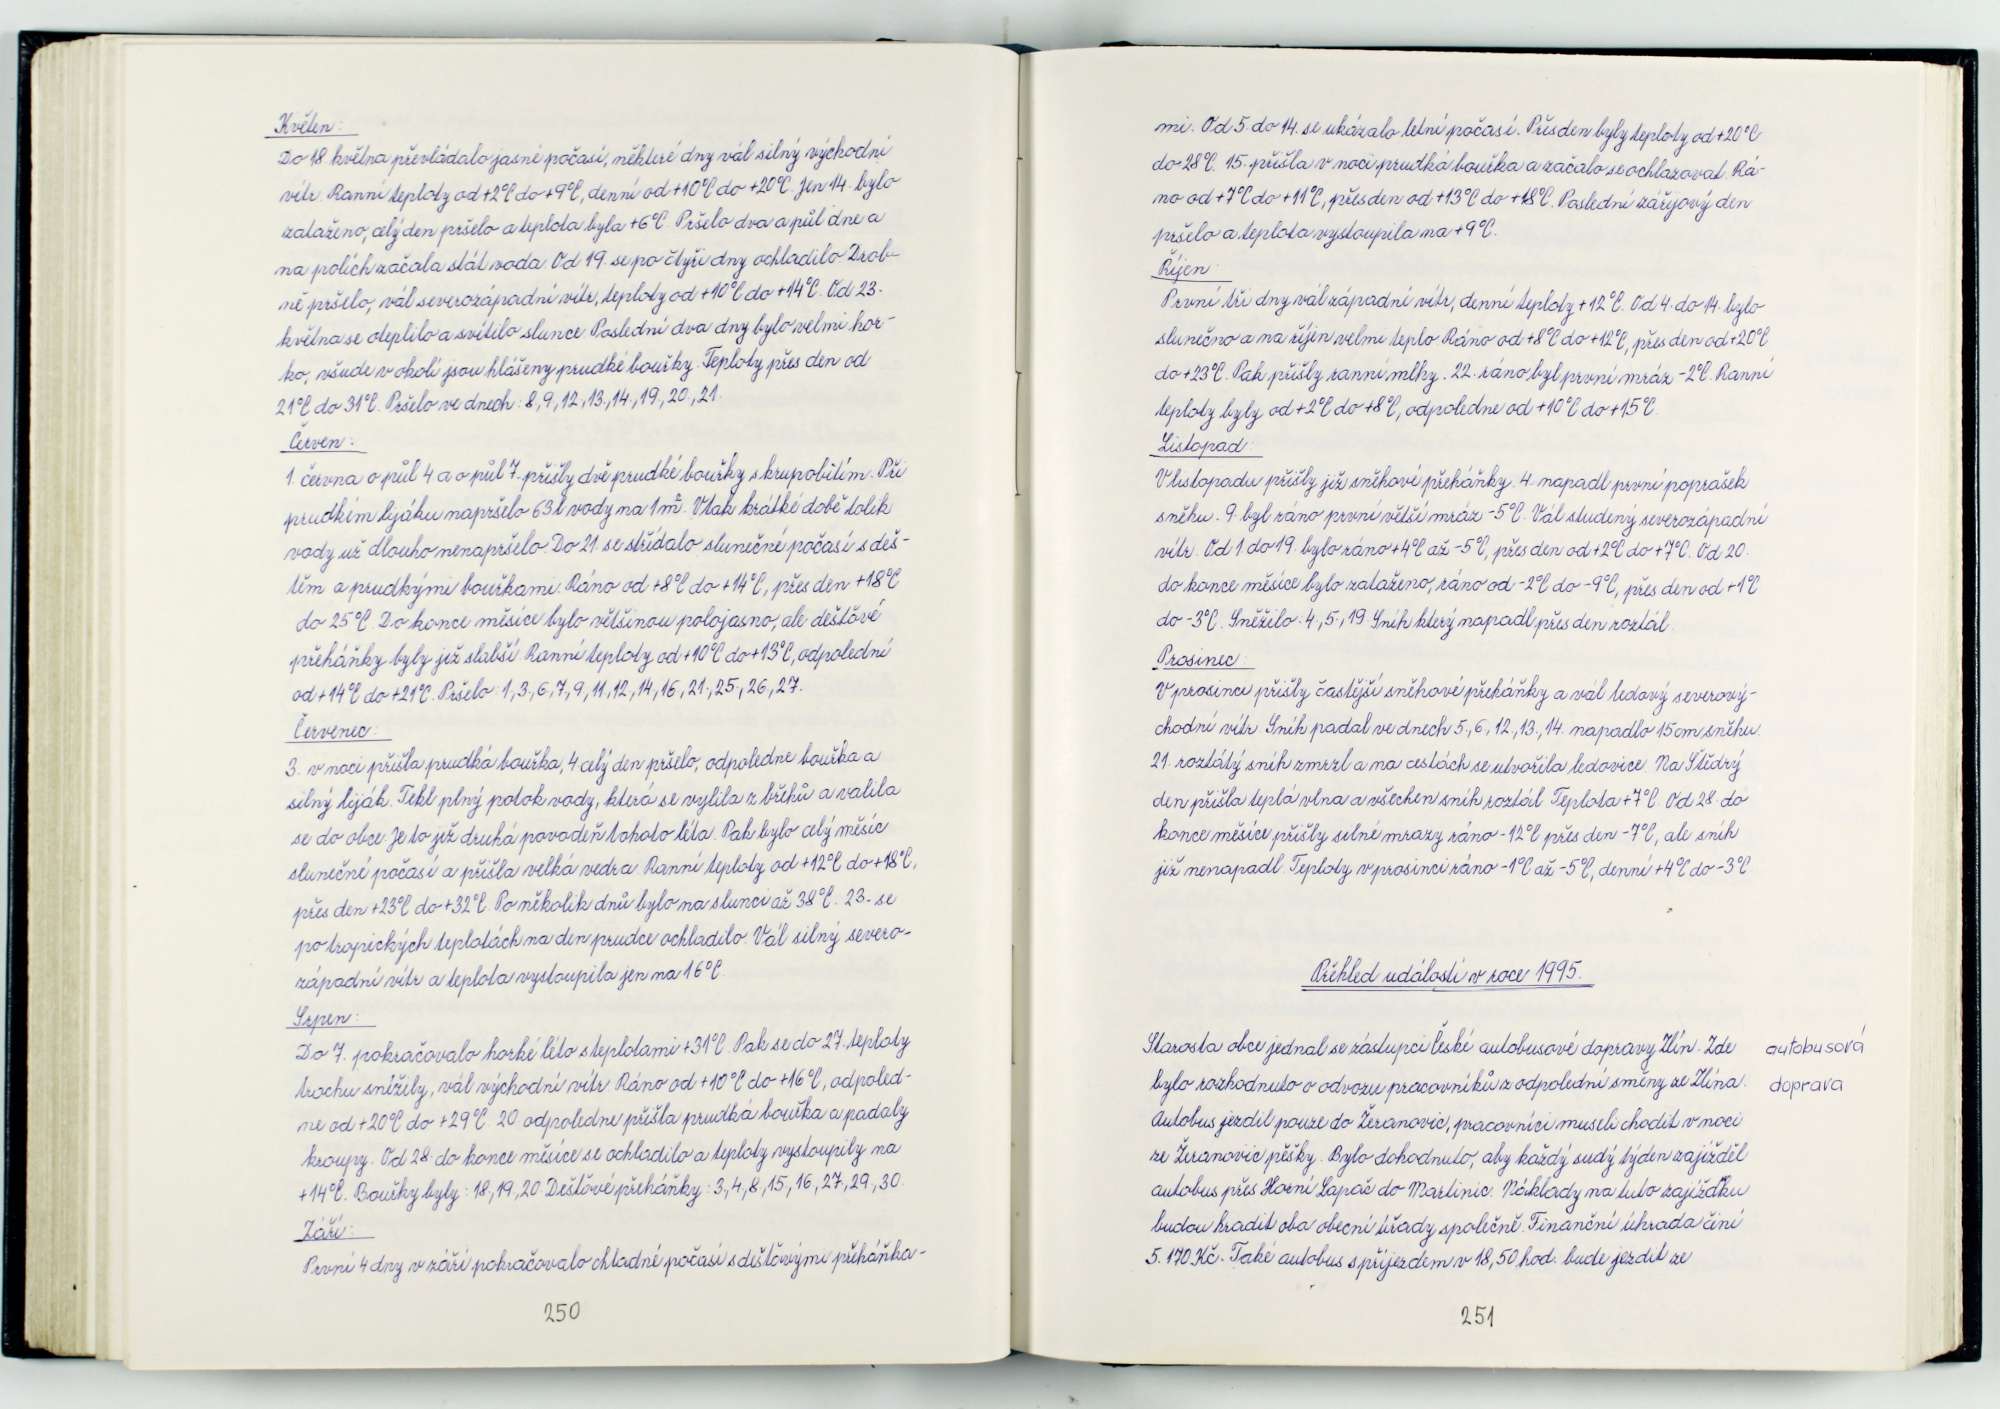 Květen:
Do 18. května převládalo jasné počasí, některé dny vál silný východní
vítr. Ranní teploty od +2°C do +9°C, denní od +10°C do +20°C. Jen 14. bylo
zataženo, celý den pršelo a teplota byla +6°C. Pršelo dva a půl dne a
na polích začala stát voda. Od 19. se po čtyři dny ochladilo. Drob-
ně pršelo, vál severozápadní vítr, teploty od +10°C do +14°C. Od 23.
května se oteplilo a svítilo slunce. Poslední dva dny bylo velmi hor-
ko, všude v okolí jsou hlášeny prudké bouřky. Teploty přes den od
21°C do 31°C. Pršelo ve dnech: 8., 9., 12., 13., 14., 19., 20., 21.
Červen:
1. června o půl 4 a o půl 7. přišly dvě prudké bouřky s krupobitím. Při
prudkém lijáku napršelo 63 l vody na 1 m². V tak krátké době tolik
vody už dlouho nenapršelo. Do 21. se střídalo slunečné počasí s deš-
těm a prudkými bouřkami. Ráno od +8°C do +14°C, přes den +18°C
do 25°C. Do konce měsíce bylo většinou polojasno, ale dešťové
přeháňky byly již slabší. Ranní teploty od +10°C do +13°C, odpolední
od +14°C do +21°C. Pršelo: 1., 3., 6., 7., 9., 11., 12., 14., 16., 21., 25., 26., 27.
Červenec:
3. v noci přišla prudká bouřka, 4. celý den pršelo, odpoledne bouřka a
silný liják. Tekl plný potok vody, která se vylila z břehů a valila
se do obce. Je to již druhá povodeň tohoto léta. Pak bylo celý měsíc
slunečné počasí a přišla velká vedra. Ranní teploty od +12°C do +18°C,
přes den +23°C do +32°C. Po několik dnů bylo na slunci až 38°C. 23. se
po tropických teplotách na den prudce ochladilo. Vál silný severo-
západní vítr a teplota vystoupila jen na 16°C.
Srpen:
Do 7. pokračovalo horké léto s teplotami +31°C. Pak se do 27. teploty
trochu snížily, vál východní vítr. Ráno od +10°C do +16°C, odpoled-
ne od +20°C do +29°C. 20. odpoledne přišla prudká bouřka a padaly
kroupy. Od 28. do konce měsíce se ochladilo a teploty vystoupily na
+14°C. Bouřky byly: 18., 19., 20. Dešťové přeháňky: 3., 4., 8., 15., 16., 27., 29., 30.
Září:
První 4 dny v září pokračovalo chladné počasí s dešťovými přeháňka-
250
mi. Od 5. do 14. se ukázalo letní počasí. Přes den byly teploty od +20°C
do 28°C. 15. přišla v noci prudká bouřka a začalo se ochlazovat. Rá-
no od +7°C do +11°C, přes den od +13°C do +18°C. Poslední zářijový den
pršelo a teplota vystoupila na +9°C.
Říjen:
První tři dny vál západní vítr, denní teploty +12°C. Od 4. do 14. bylo
slunečno a na říjen velmi teplo. Ráno od +8°C do +12°C, přes den od +20°C
do +23°C. Pak přišly ranní mlhy. 22. ráno byl první mráz -2°C. Ranní
teploty byly od +2°C do +8°C, odpoledne od +10°C do +15°C.
Listopad:
V listopadu přišly již sněhové přeháňky. 4. napadl první poprašek
sněhu. 9. byl ráno první větší mráz -5°C. Vál studený severozápadní
vítr. Od 1. do 19. bylo ráno +4°C až -5°C, přes den od +2°C do +7°C. Od 20.
do konce měsíce bylo zataženo, ráno od -2°C do -9°C, přes den od +1°C
do -3°C. Sněžilo: 4., 5., 19. Sníh který napadl přes den roztál.
Prosinec:
V prosinci přišly častější sněhové přeháňky a vál ledový severový-
chodní vítr. Sníh padal ve dnech 5., 6., 12., 13., 14. napadlo 15 cm sněhu.
21. roztátý sníh zmrzl a na cestách se utvořila ledovice. Na Štědrý
den přišla teplá vlna a všechen sníh roztál. Teplota +7°C. Od 28. do
konce měsíce přišly silné mrazy ráno -12°C přes den -7°C, ale sníh
již nenapadl. Teploty v prosinci ráno -1°C až -5°C, denní +4°C do -3°C
Přehled událostí v roce 1995.
Starosta obce jednal se zástupci České autobusové dopravy Zlín. Zde
bylo rozhodnuto o odvozu pracovníků z odpolední směny ze Zlína.
Autobus jezdil pouze do Žeranovic, pracovníci museli chodit v noci
ze Žeranovic pěšky. Bylo dohodnuto, aby každý sudý týden zajížděl
autobus přes Horní Lapač do Martinic. Náklady na tuto zajížďku
budou hradit oba obecní úřady společně. Finanční úhrada činí
5.170 Kč. Také autobus s příjezdem v 18,50 hod. bude jezdit ze
autobusová
doprava
251